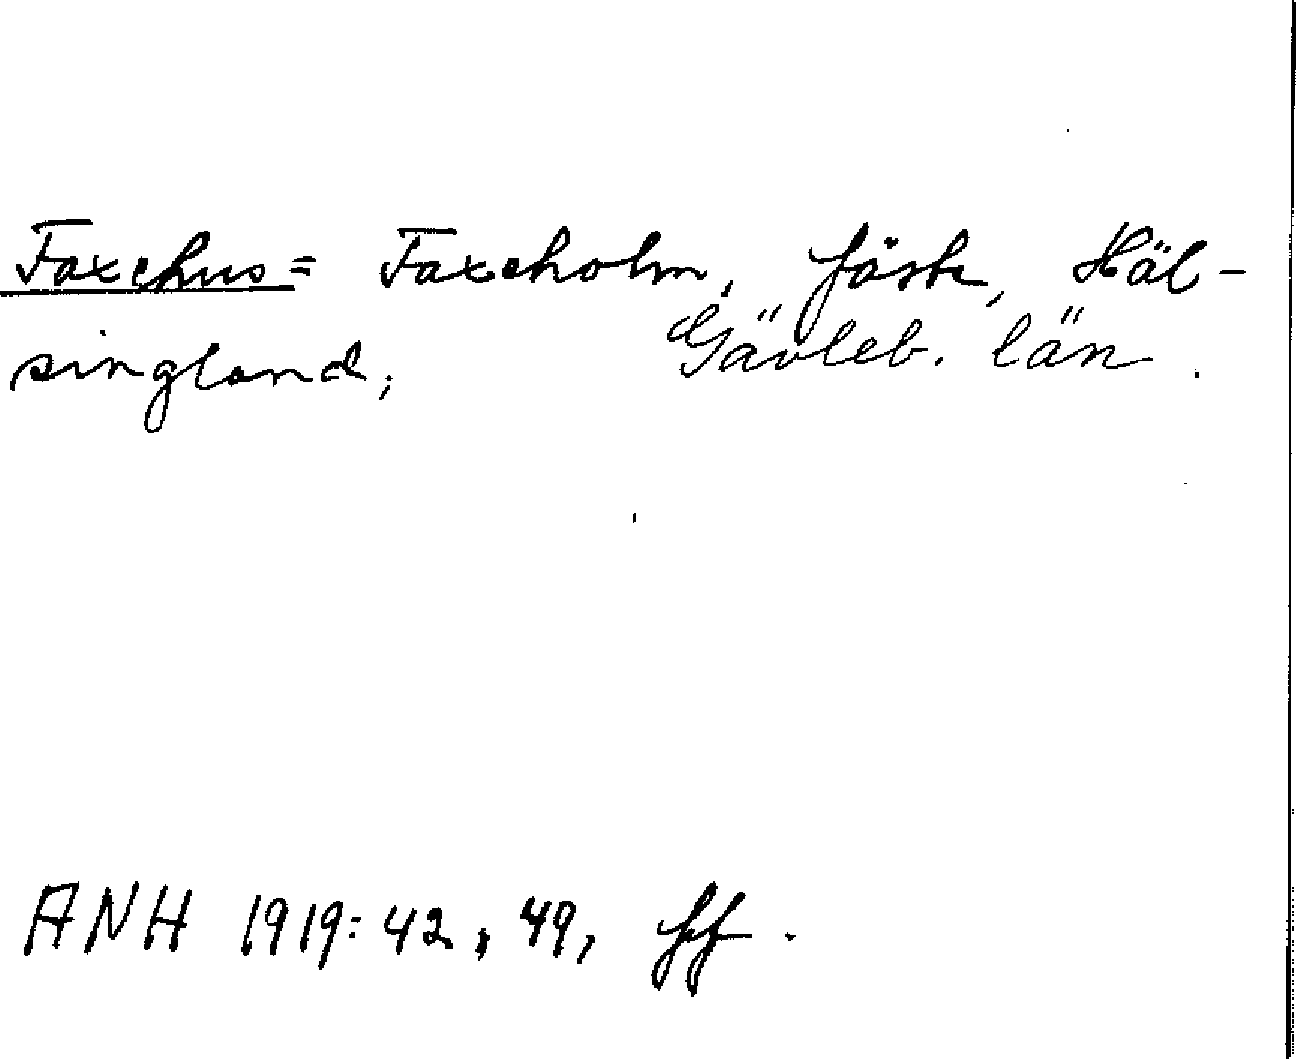 Faxehus = Faxeholm, fäste, Häl-
singland, Gävleb. län.
ANH 1919: 42, 49, ff.